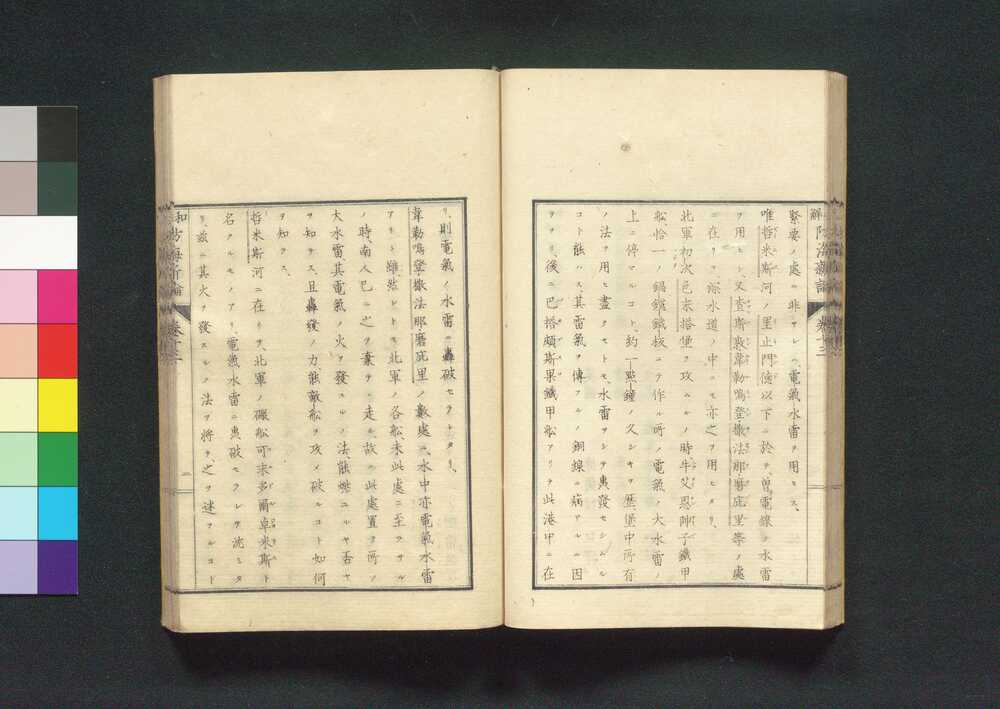 緊要ノ處ニ非サレハ、電氣水雷ヲ用ヒス、
唯哲米斯河ノ里止門德以下ニ於テ、曽電線ノ水雷
ヲ用ヒシ、又査斯敦韋勒鳴登撒法那磨庇里等ノ處
ニ在リテ、深水道ノ中ニモ亦之ヲ用ヒタリ、
北軍初次、色末搭堡ヲ攻ムルノ時、牛艾恩帥子鐵甲
船、恰一ノ鍋鑪鐵板ニテ作ル所ノ電氣ノ大水雷ノ
上ニ停マルコト、約一點鐘ノ久シキヲ歴、堡中所有
ノ法ヲ用ヒ盡クセトモ、水雷ヲシテ轟發セシムル
コト能ハス、其雷氣ヲ傳フルノ銅線ニ病アルニ因
テナリ、後ニ巴搭頗斯果鐵甲船アリテ、此港中ニ在
リ、則電氣ノ水雷ニ轟破セラレタリ、
韋勒鳴登撒法那磨庇里ノ數處ニ、水中亦電氣水雷
アリト雖、然レトモ北軍ノ各船、未此處ニ至ラサル
ノ時、南人已ニ之ヲ棄テヽ走ル、故ニ此處置ク所ノ
大水雷、其電氣ノ火ヲ發スルノ法、能燃ユルヤ否ヤ
ヲ知ラス、且轟發ノ力、能敵船ヲ攻メ破ルコト如何
ヲ知ラス、
哲米斯河ニ在リテ、北軍ノ礮船可末多爾卓米斯ト
名クルモノアリ、電氣水雷ニ轟破セラレテ沈ミタ
リ、玆ニ其火ヲ發スルノ法ヲ將テ、之ヲ述フルコト
卷十三
二